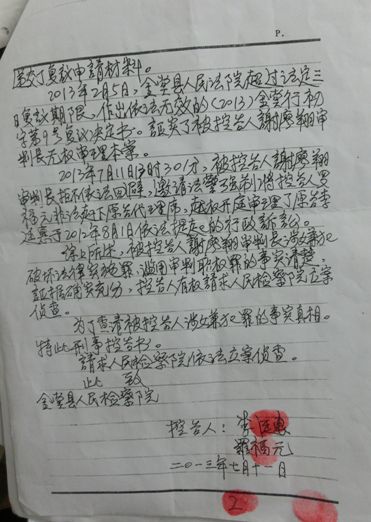 P.
递交了复议申請材料。
2013年2月5日,金堂县人民法院超过法定三
日复议期限,作出依法无效的(2013)金堂行初
字第9号复议决定书。証实了被控告人謝廖翔审
判长无权审理本案。
2013年7月11日3时30分,被控告人謝廖翔
审判长拒不依法回避,邀請法警法制将控告人罗
福元非法赶下原告代理席,趁机开庭审理了原告李
廷惠于2013年8月1日依法提起的行政訴訟。
综上所述,被控告人謝廖翔审判长涉嫌犯
破坏法律实施罪,滥用审判职权罪的事实清楚,
証据确实充分,控告人有权請求人民检察院立案
侦查。
为了查清被控告人涉嫌犯罪的事实真相。
特此刑事控告书。
請求人民检察院依法立案侦查。
此 致
金堂县人民检察院
控告人:李廷惠
羅福元
二〇一三年七月十一日
2